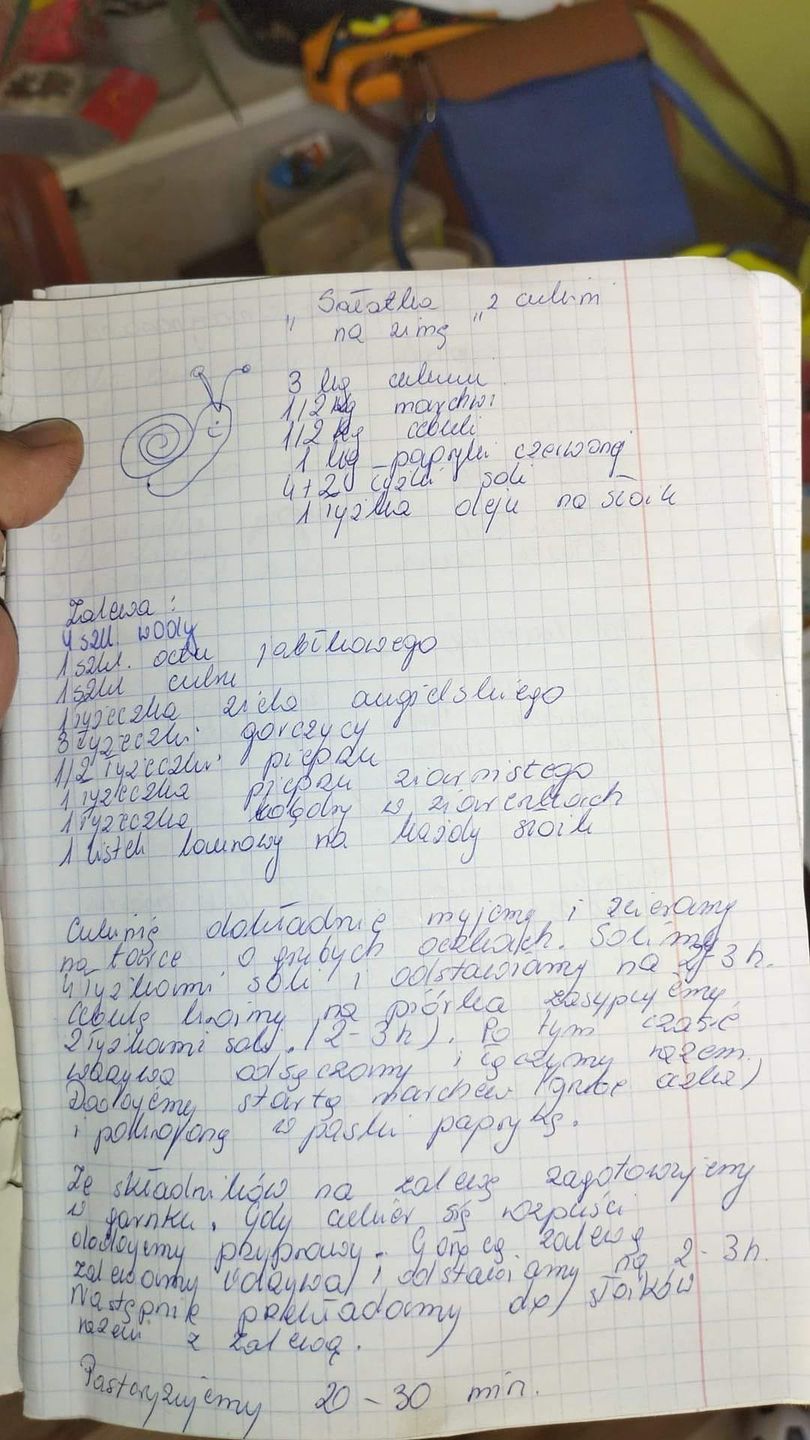 „Sałatka „z cukini
na zimę
3 kg cukinii
1/2 kg marchwi
1/2 kg cebuli
1 kg papryki czerwonej
4+2 łyżki soli
1 łyżka oleju na słoik
Zalewa:
4 szkl. wody
1 szkl. octu jabłkowego
1 szkl cukru
1 łyżeczka ziela angielskiego
3 łyżeczki gorczycy
1/2 łyżeczki pieprzu
1 łyżeczka pieprzu ziarnistego
1 łyżeczka kolendry w ziarenkach
1 listek laurowy na każdy słoik
Cukinię dokładnie myjemy i ścieramy
na tarce o grubych oczkach. Solimy
4 łyżkami soli i odstawiamy na 2-3 h.
Cebulę kroimy na piórka zasypujemy
2 łyżkami soli. (2-3 h). Po tym czasie
warzywa odsączamy i łączymy razem.
Dodajemy startą marchew (grube oczka)
i pokrojoną w paski paprykę.
Ze składników na zalewę zagotowujemy
w garnku. Gdy cukier się rozpuści
dodajemy przyprawy. Gorącą zalewą
zalewamy warzywa i odstawiamy na 2-3 h.
Następnie przekładamy do słoików
razem z zalewą.
Pasteryzujemy 20-30 min.